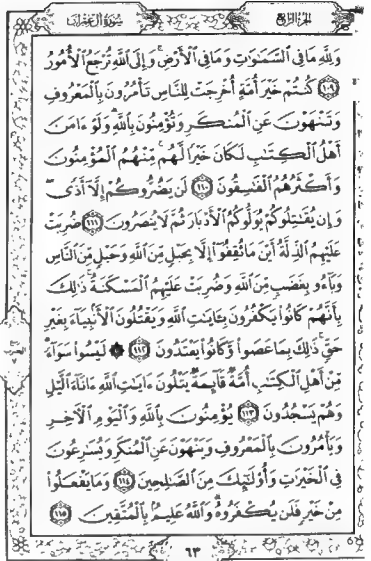 سورة آل عمران
الجزء الرابع
وَلِلَّهِ مَا فِي السَّمَاوَاتِ وَمَا فِي الْأَرْضِ وَإِلَى اللَّهِ تُرْجَعُ الْأُمُورُ
١٠٩ كُنتُمْ خَيْرَ أُمَّةٍ أُخْرِجَتْ لِلنَّاسِ تَأْمُرُونَ بِالْمَعْرُوفِ
وَتَنْهَوْنَ عَنِ الْمُنكَرِ وَتُؤْمِنُونَ بِاللَّهِ وَلَوْ ءَامَنَ
أَهْلُ الْكِتَابِ لَكَانَ خَيْرًا لَّهُم مِّنْهُمُ الْمُؤْمِنُونَ
وَأَكْثَرُهُمُ الْفَاسِقُونَ ١١٠ لَن يَضُرُّوكُمْ إِلَّا أَذًى
وَإِن يُقَاتِلُوكُمْ يُوَلُّوكُمُ الْأَدْبَارَ ثُمَّ لَا يُنصَرُونَ ١١١ ضُرِبَتْ
عَلَيْهِمُ الذِّلَّةُ أَيْنَ مَا ثُقِفُوا إِلَّا بِحَبْلٍ مِّنَ اللَّهِ وَحَبْلٍ مِّنَ النَّاسِ
وَبَاءُو بِغَضَبٍ مِّنَ اللَّهِ وَضُرِبَتْ عَلَيْهِمُ الْمَسْكَنَةُ ذَٰلِكَ
بِأَنَّهُمْ كَانُوا يَكْفُرُونَ بِـَٔايَاتِ اللَّهِ وَيَقْتُلُونَ الْأَنبِيَاءَ بِغَيْرِ
حَقٍّ ذَٰلِكَ بِمَا عَصَوا وَّكَانُوا يَعْتَدُونَ ١١٢ لَيْسُوا سَوَاءً
مِّنْ أَهْلِ الْكِتَابِ أُمَّةٌ قَائِمَةٌ يَتْلُونَ ءَايَاتِ اللَّهِ ءَانَاءَ الَّيْلِ
وَهُمْ يَسْجُدُونَ ١١٣ يُؤْمِنُونَ بِاللَّهِ وَالْيَوْمِ الْآخِرِ
وَيَأْمُرُونَ بِالْمَعْرُوفِ وَيَنْهَوْنَ عَنِ الْمُنكَرِ وَيُسَارِعُونَ
فِي الْخَيْرَاتِ وَأُولَٰئِكَ مِنَ الصَّالِحِينَ ١١٤ وَمَا يَفْعَلُوا
مِنْ خَيْرٍ فَلَن يُكْفَرُوهُ وَاللَّهُ عَلِيمٌ بِالْمُتَّقِينَ ١١٥
٦٣